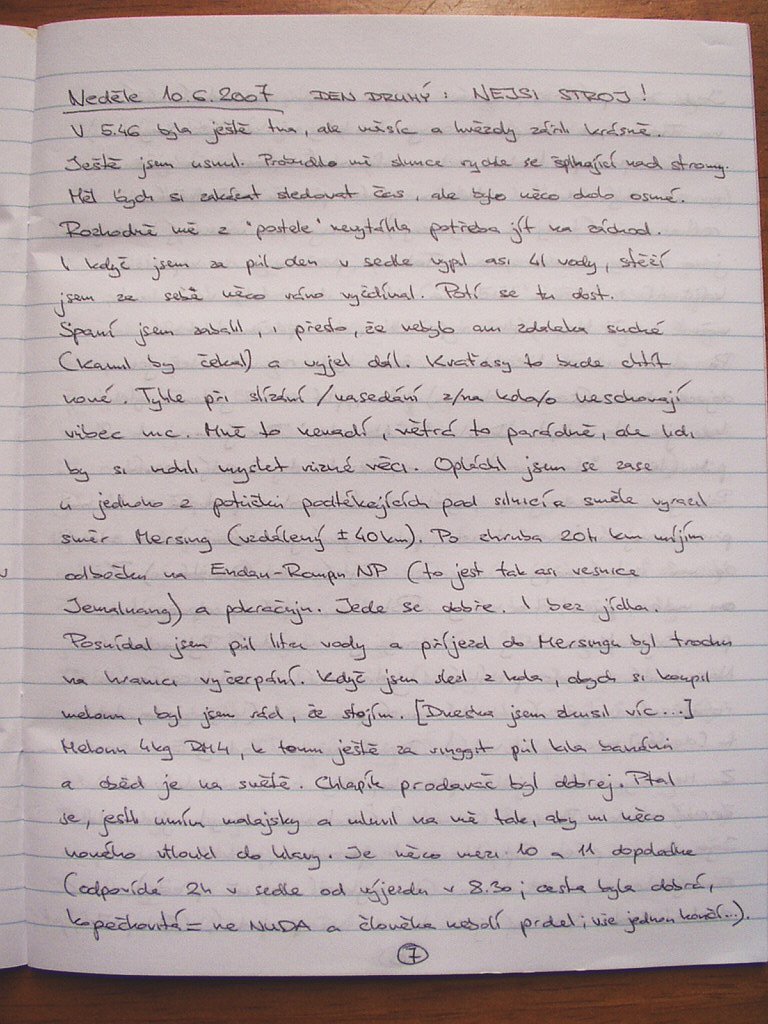 Neděle 10.6.2007 DEN DRUHÝ: NEJSI STROJ!
V 5.46 byla ještě tma, ale měsíc a hvězdy zářili krásně.
Ještě jsem usnul. Probudilo mě slunce rychle se šplhající nad stromy.
Měl bych si zakázat sledovat čas, ale bylo něco okolo osmé.
Rozhodně mě z "postele" nevytáhla potřeba jít na záchod.
I když jsem za půl_den v sedle vypil asi 4l vody, stěží
jsem ze sebe něco ráno vyždímal. Potí se tu dost.
Spaní jsem zabalil, i přesto, že nebylo ani zdaleka suché
(Kamil by čekal) a vyjel dál. Kraťasy to bude chtít
nové. Tyhle při slízání/nasedání z/na kola/o neschovají
vůbec nic. Mně to nevadí, větrá to parádně, ale lidi
by si mohli myslet různé věci. Opláchl jsem se zase
u jednoho z potůčků podtékajících pod silnicí a směle vyrazil
směr Mersing (vzdálený ± 40km). Po zhruba 20ti km míjím
odbočku na Endau-Rompin NP (to jest tak asi vesnice
Jemaluang) a pokračuju. Jede se dobře. I bez jídla.
Posnídal jsem půl litru vody a příjezd do Mersingu byl trochu
na hranici vyčerpání. Když jsem slezl z kola, abych si koupil
meloun, byl jsem rád, že stojím. [Dneska jsem zkusil víc...]
Meloun 4kg RM4, k tomu ještě za ringgit půl kila banánů
a oběd je na světě. Chlapík prodavač byl dobrej. Ptal
se, jestli umím malajsky a mluvil na mě tak, aby mi něco
nového vtloukl do hlavy. Je něco mezi 10 a 11 dopoledne
(odpovídá 2h v sedle od výjezdu v 8.30; cesta byla dobrá,
kopečkovitá = ne NUDA a člověka nebolí prdel; vše jednou končí...).
7